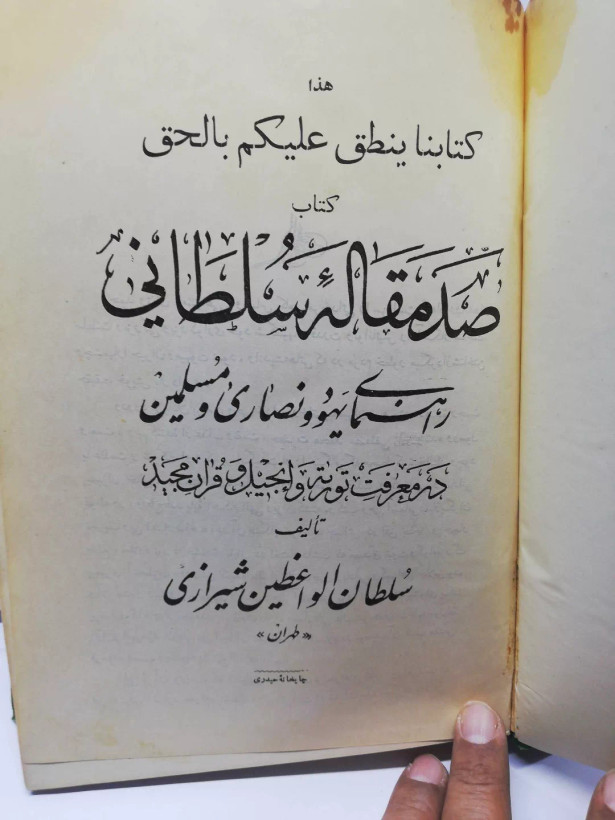 هذا
کتابنا ینطق علیکم بالحق
کتاب
صَد مَقَالهٔ سُلطَانی
راهنمای یهود و نصاری و مُسلمین
دَر مَعرفَت تَوریة وَ اِنجیل وَ قُرآن مَجید
تألیف
سُلطان الواعظین شیرازی
«طهران»
چاپخانهٔ حیدری